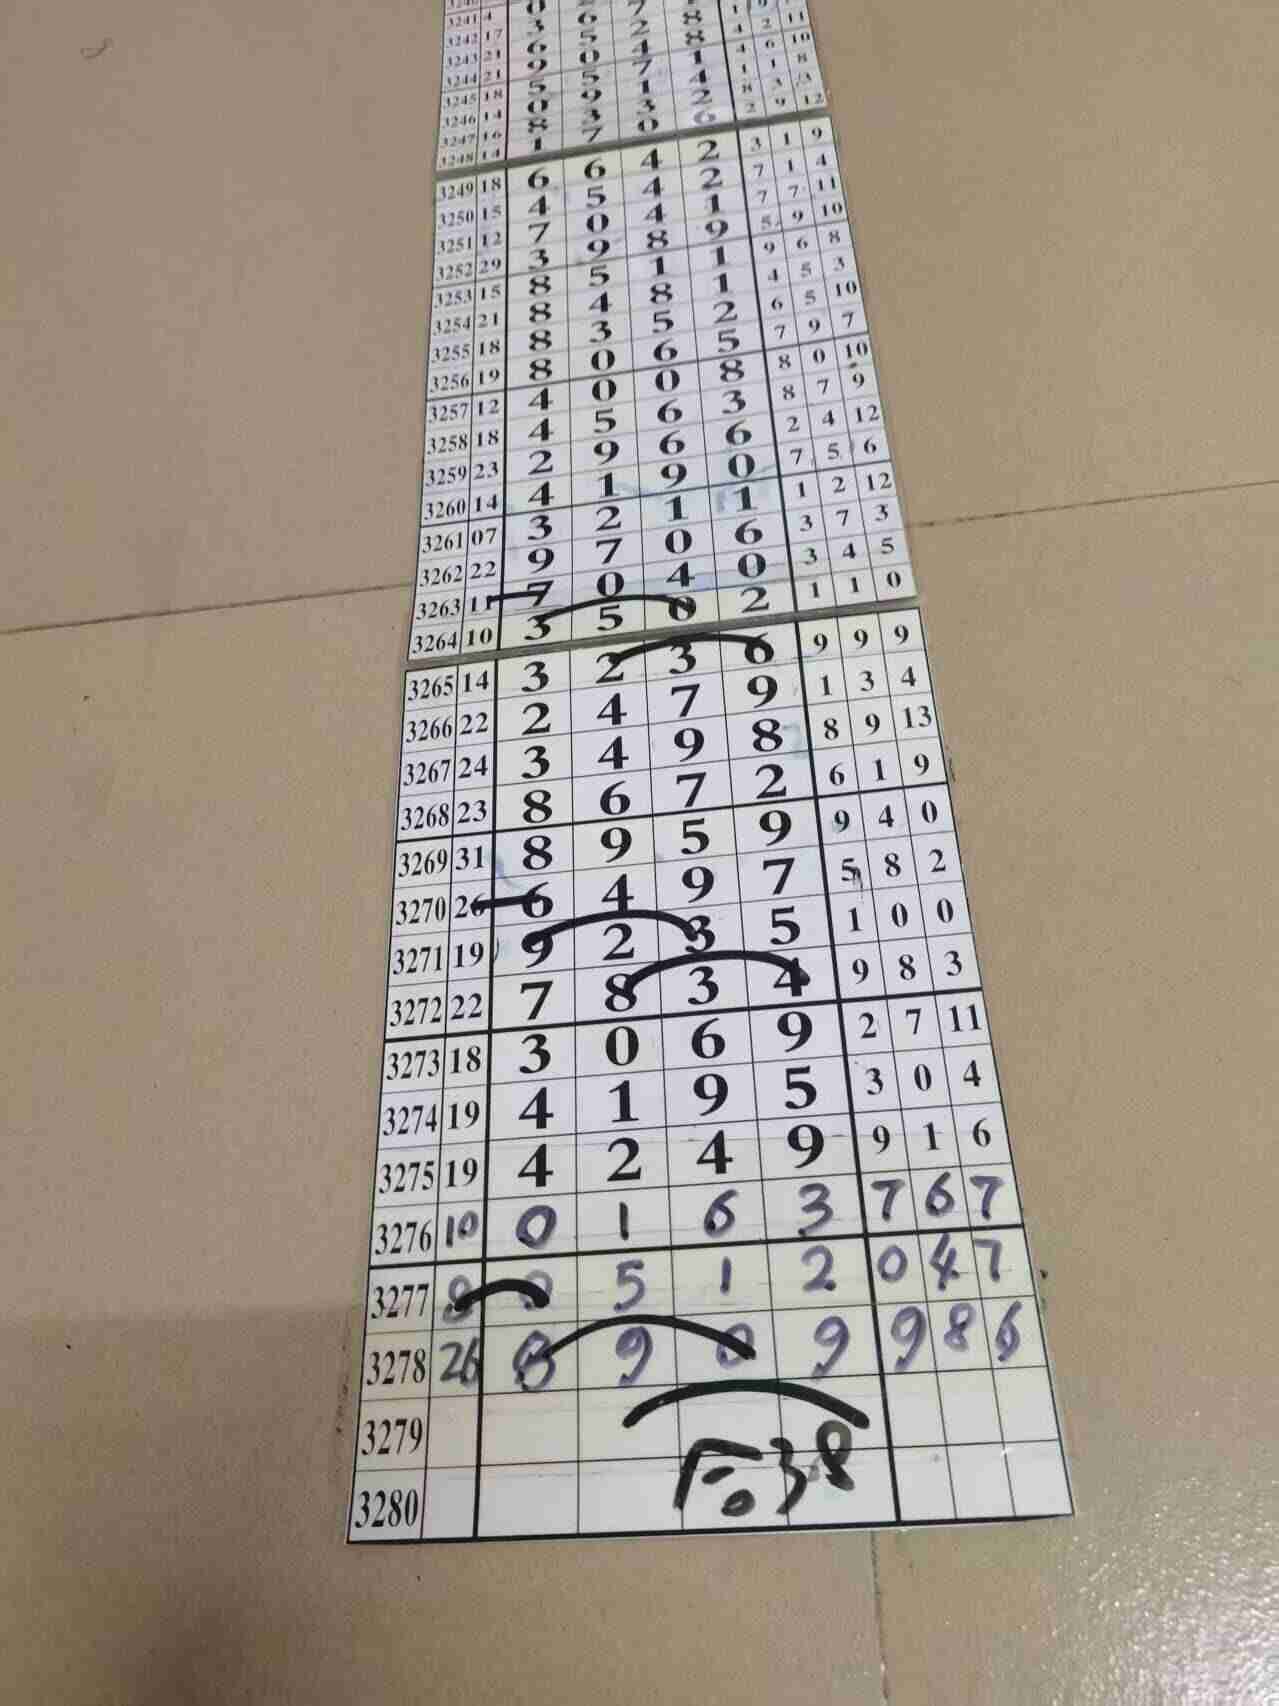 3241 4 0
3242 17 3 6 7
3243 21 6 5 2 8 1 9
3244 21 9 0 4 8 4 2 11
3245 18 5 5 7 1 4 6 10
3246 14 0 9 1 4 1 1 8
3247 16 8 3 3 2 8 3
3248 14 1 7 0 6 2 9 12
3249 18 6 6 4 2 3 1 9
3250 15 4 5 4 2 7 1 4
3251 12 7 0 4 1 7 7 11
3252 29 3 9 8 9 5 9 10
3253 15 8 5 1 1 9 6 8
3254 21 8 4 8 1 4 5 3
3255 18 8 3 5 2 6 5 10
3256 19 8 0 6 5 7 9 7
3257 12 4 0 0 8 8 0 10
3258 18 4 5 6 3 8 7 9
3259 23 2 9 6 6 2 4 12
3260 14 4 1 9 0 7 5 6
3261 07 3 2 1 1 1 2 12
3262 22 9 7 0 6 3 7 3
3263 11 7 0 4 0 3 4 5
3264 10 3 5 0 2 1 1 0
3265 14 3 2 3 6 9 9 9
3266 22 2 4 7 9 1 3 4
3267 24 3 4 9 8 8 9 13
3268 23 8 6 7 2 6 1 9
3269 31 8 9 5 9 9 4 0
3270 26 6 4 9 7 5 8 2
3271 19 9 2 3 5 1 0 0
3272 22 7 8 3 4 9 8 3
3273 18 3 0 6 9 2 7 11
3274 19 4 1 9 5 3 0 4
3275 19 4 2 4 9 9 1 6
3276 10 0 1 6 3 7 6 7
3277 8 0 5 1 2 0 4 7
3278 26 8 9 0 9 9 8 6
3279
3280
38